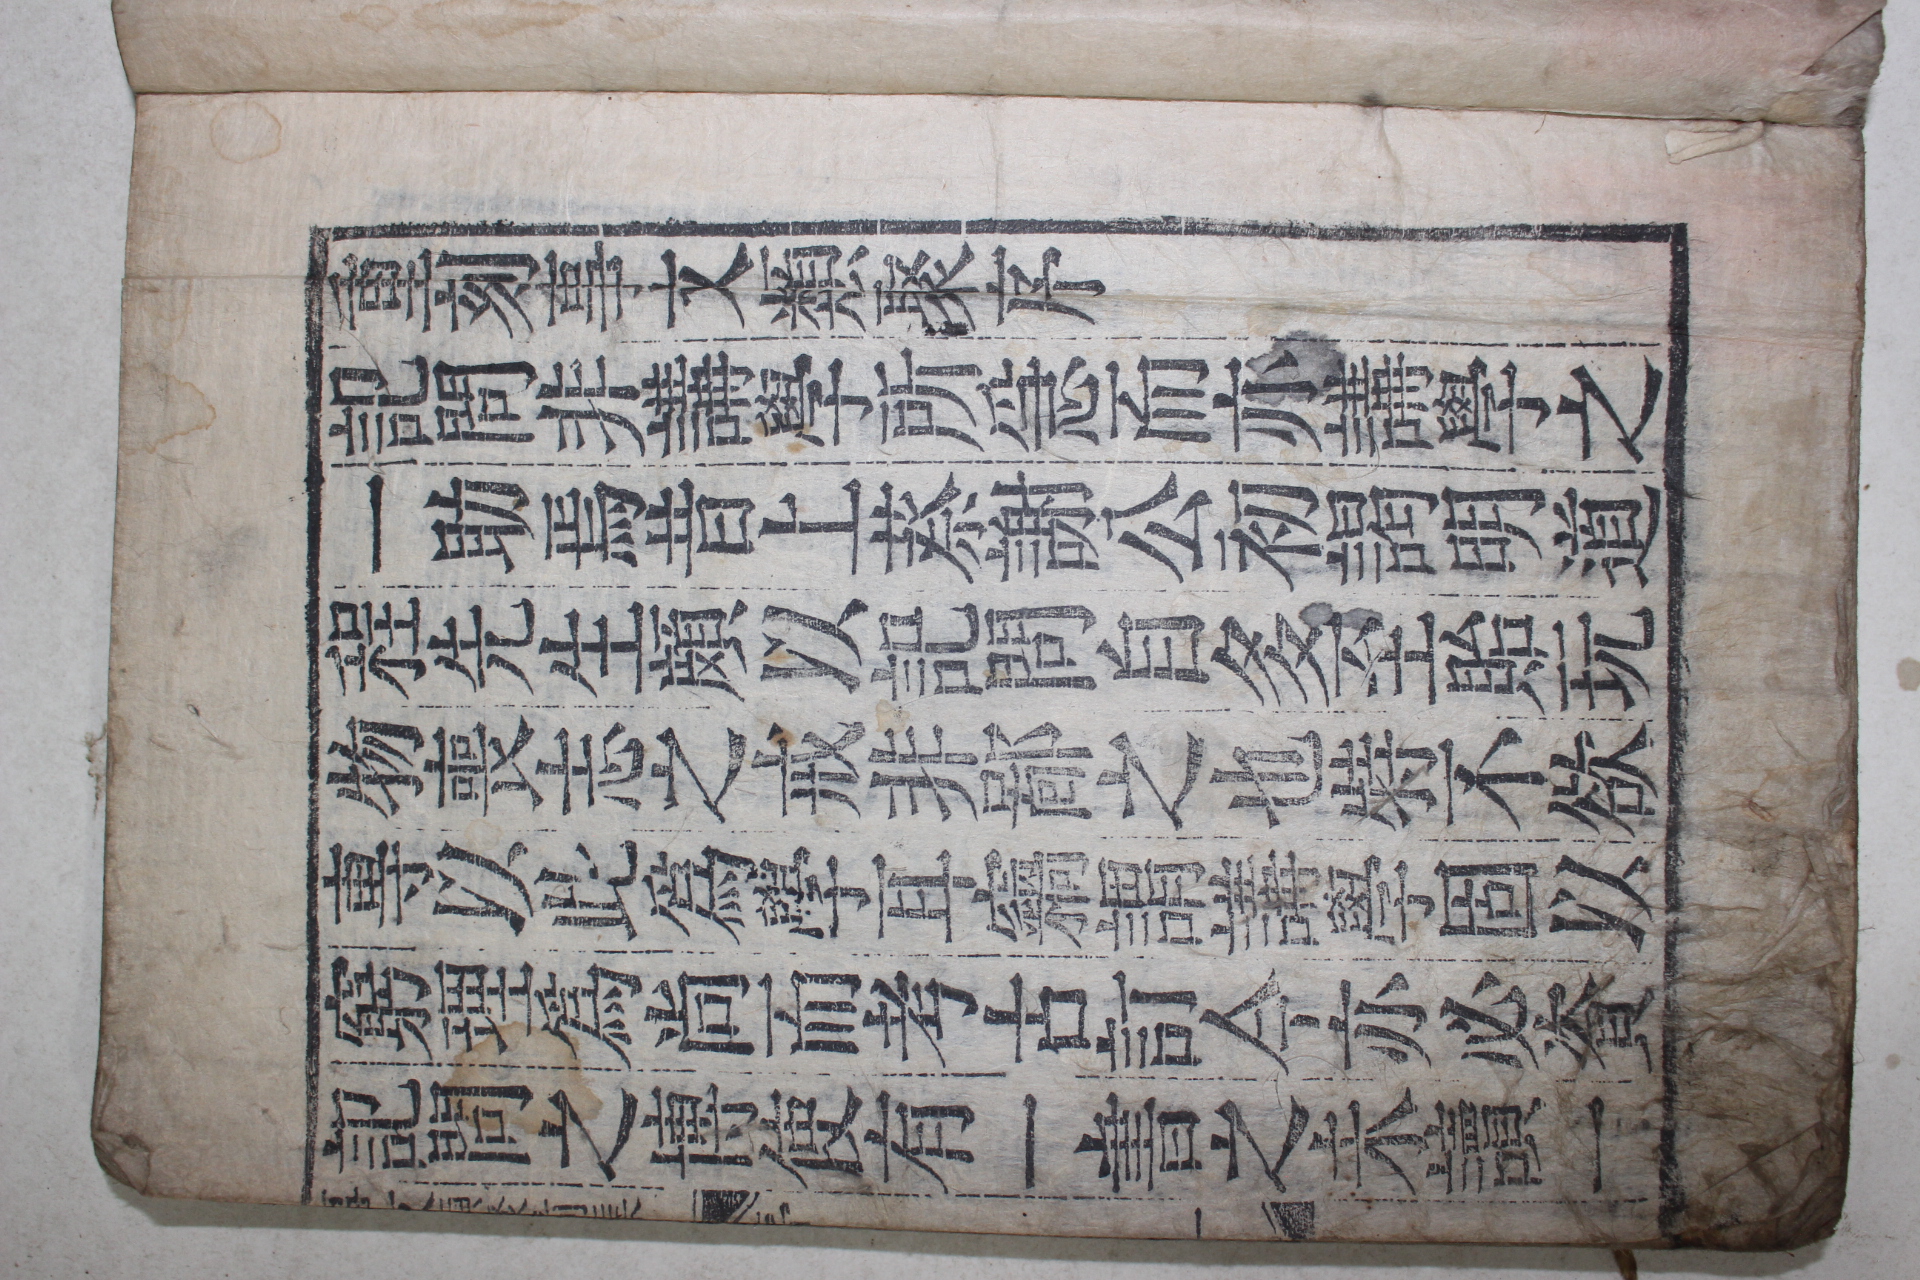 重刻事文類聚序
記問非講學所急而亦講學之
一助焉昔上蔡謝公初謁明道
程先生頗以記問自多至貽玩
物喪志之戒非鄙之也特不欲
專以此爲學耳竊謂講學固以
窮理爲尚而考古訂今亦必資
記問之博使有一書之未讀一